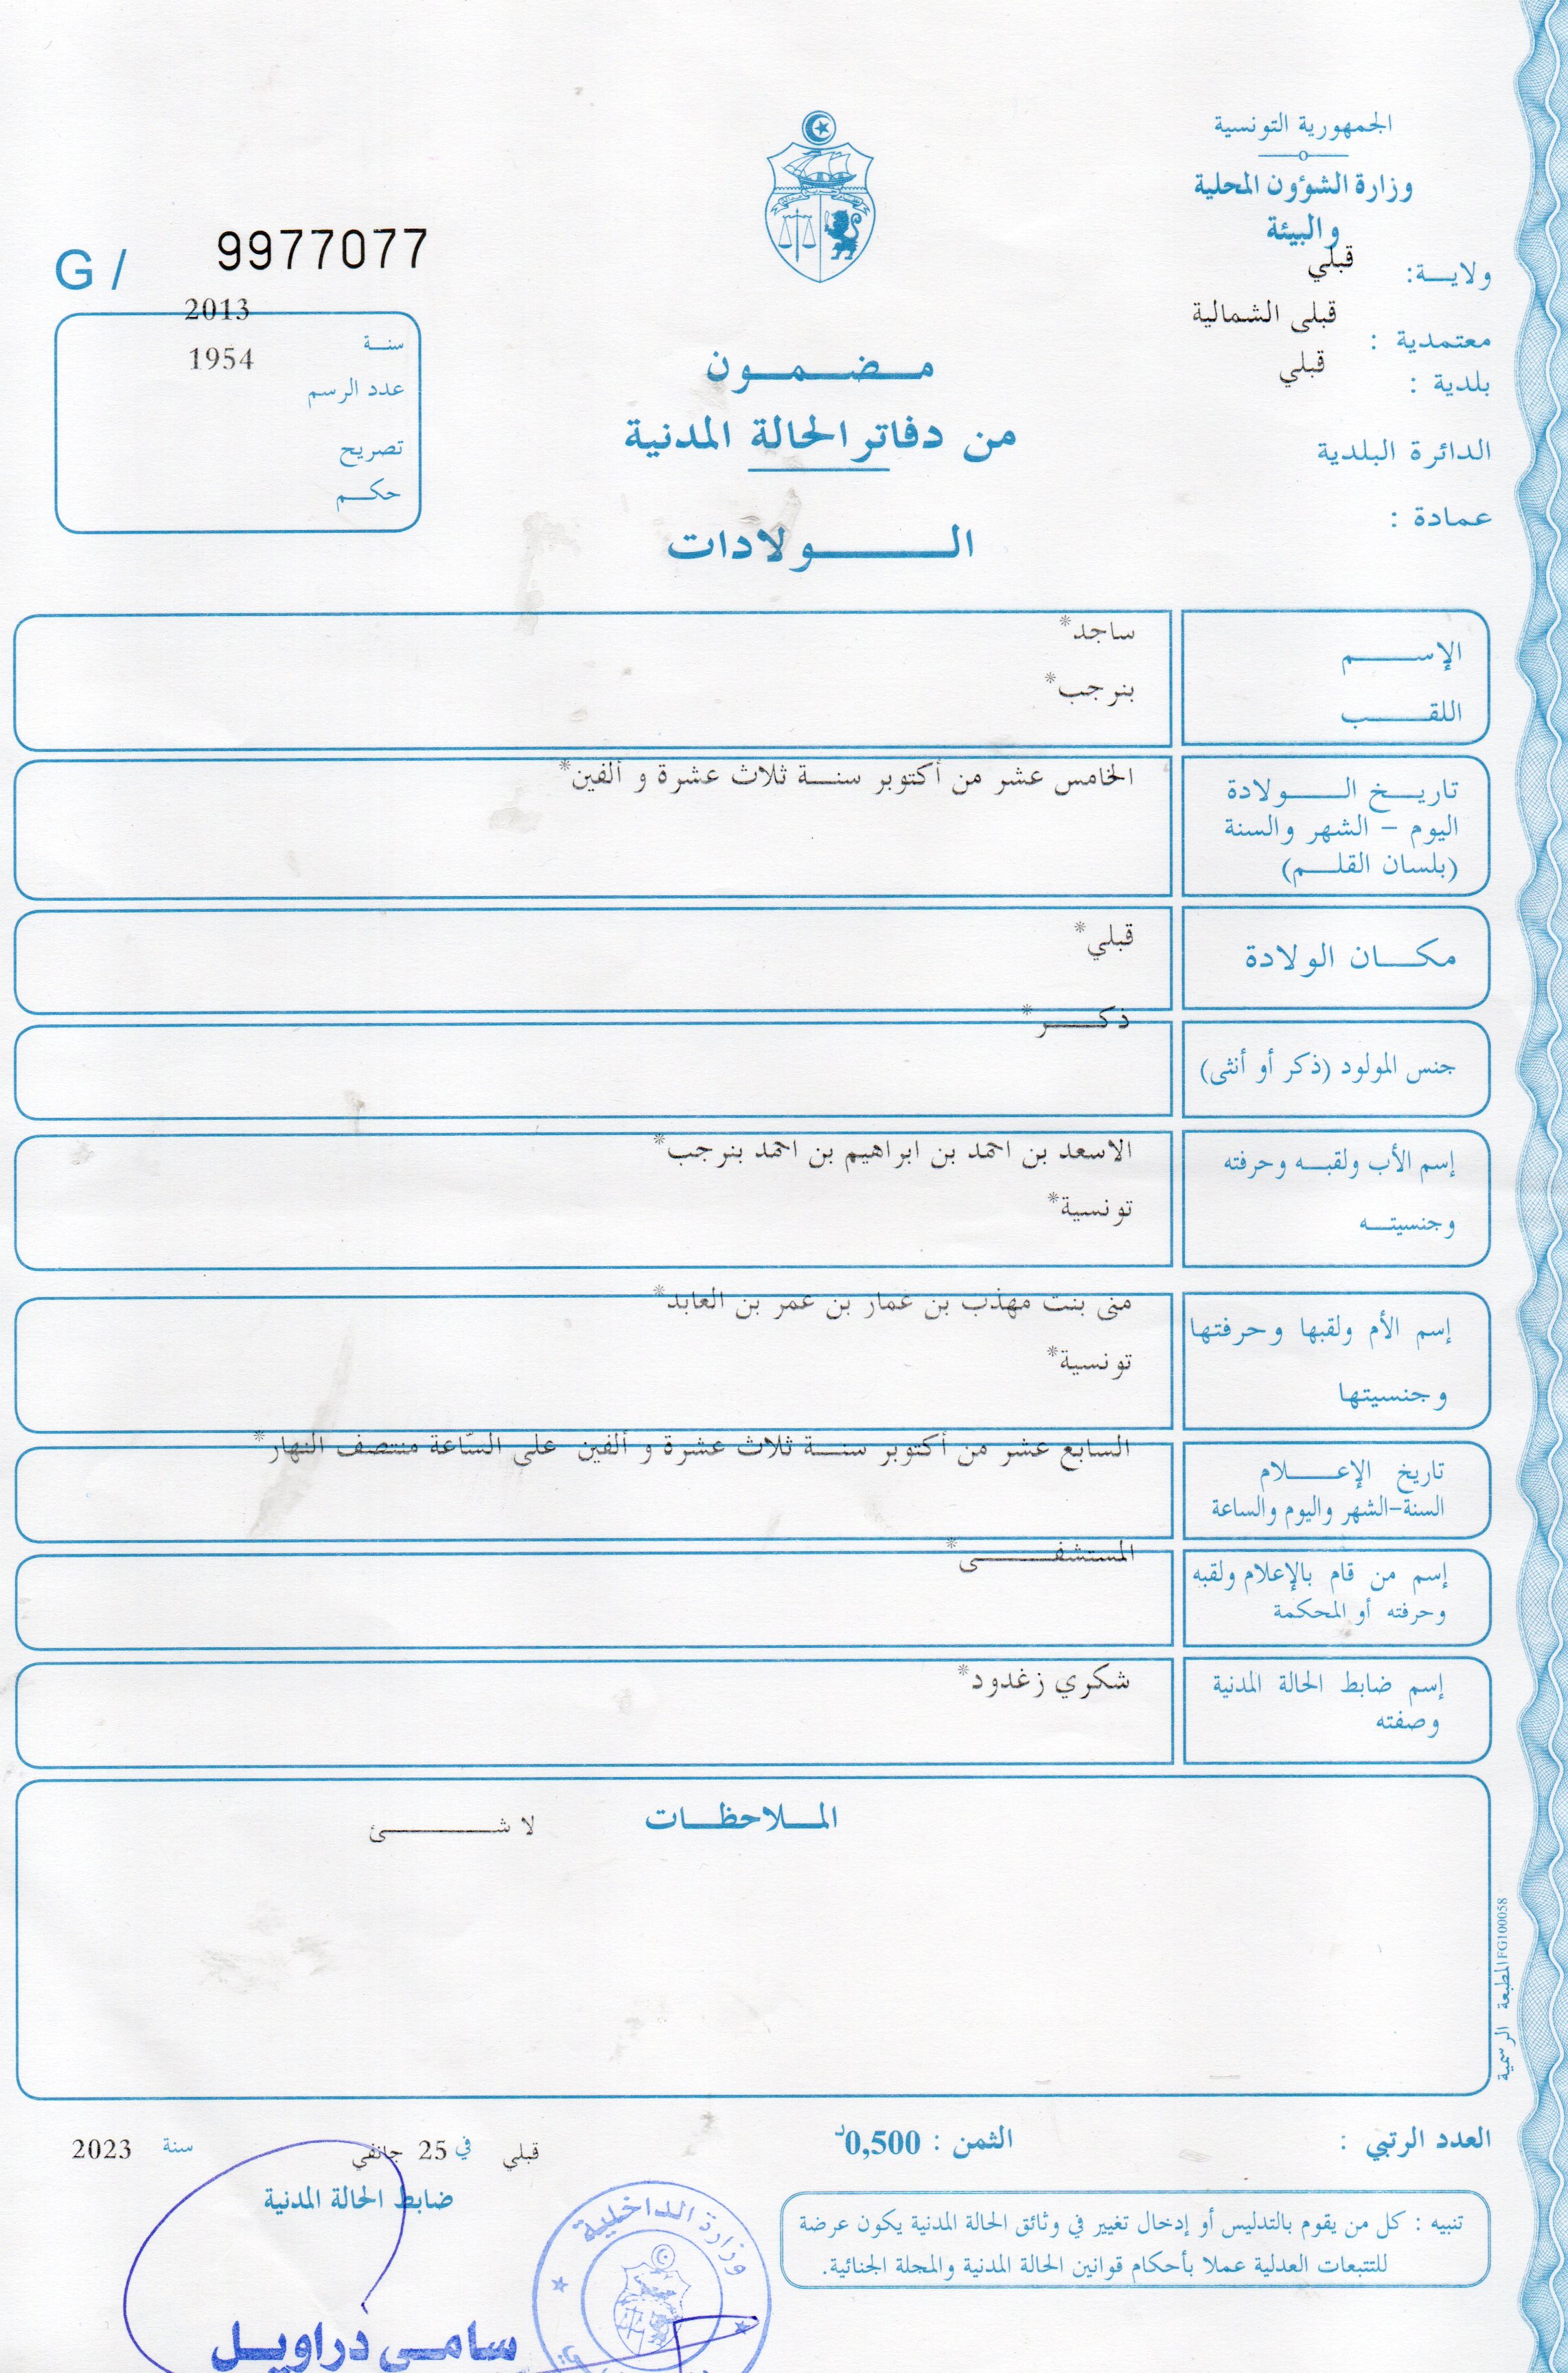 الجمهورية التونسية
وزارة الشؤون المحلية
والبيئة
ولايـــة: قبلي
معتمدية : قبلى الشمالية
بلدية : قبلي
الدائرة البلدية
عمادة :
G / 9977077
سنــة 2013
عدد الرسم 1954
تصريح
حكــم
مــضــمــون
من دفاتر الحالة المدنية
الــــولادات
الإســــم ساجد*
اللقــــب بنرجب*
تاريــخ الـــــولادة الخامس عشر من أكتوبر سنــة ثلاث عشرة و ألفين*
اليوم – الشهر والسنة
(بلسان القلـــم)
مكـــان الولادة قبلي*
جنس المولود (ذكر أو أنثى) ذكــــر*
إسم الأب ولقبــه وحرفته الاسعد بن احمد بن ابراهيم بن احمد بنرجب*
وجنسيتــه تونسية*
إسم الأم ولقبها وحرفتها منى بنت مهذب بن عمار بن عمر بن العابد*
وجنسيتها تونسية*
تاريخ الإعـــــلام السابع عشر من أكتوبر سنــة ثلاث عشرة و ألفين على السّاعة منتصف النهار*
السنة-الشهر واليوم والساعة
إسم من قام بالإعلام ولقبه المستشفــــــى*
وحرفته أو المحكمة
إسم ضابط الحالة المدنية شكري زغدود*
وصفته
المــلاحظــات لا شــــــئ
المطبعة الرسمية FG100058
العدد الرتبي :
الثمن : 0,500د
قبلي في 25 جانفي سنة 2023
ضابط الحالة المدنية
تنبيه : كل من يقوم بالتدليس أو إدخال تغيير في وثائق الحالة المدنية يكون عرضة
للتتبعات العدلية عملا بأحكام قوانين الحالة المدنية والمجلة الجنائية.
وزارة الداخلية
سامي دراويل